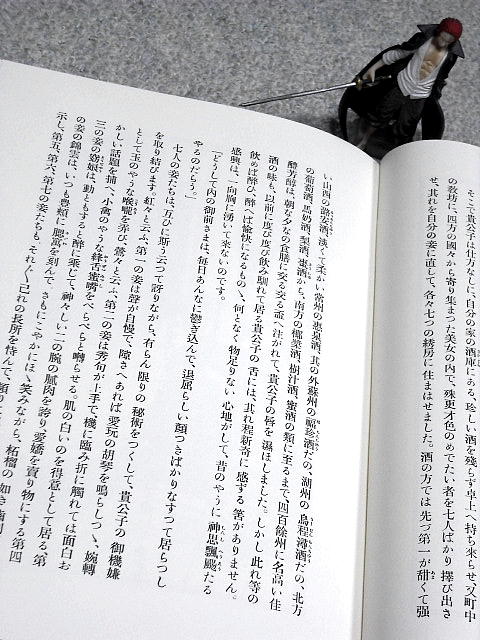 そこで貴公子は仕方なしに、自分の家の酒庫にある、珍しい酒を残らず卓上へ持ち来らせ、又町中
の教坊に、四方の國々から寄り集まつた美女の内で、殊更才色のめでたい者を七人ばかり擇び出さ
せ、其れを自分の妾に直して、各々七つの綉房に住まはせました。酒の方では先づ第一が甜くて强
い山西の潞安酒、淡くて柔かい常州の惠泉酒、其の外蘇州の福珍酒だの、湖州の烏程潯酒だの、北方
の葡萄酒、馬奶酒、梨酒、棗酒から、南方の椰漿酒、樹汁酒、蜜酒の類に至るまで、四百餘州に名高い佳
醴芳醇は、朝な夕なの食膳に交る交る盃へ注がれて、貴公子の唇を濕ほしました。しかし此れ等の
酒の味も、以前に度び度び飮み馴れて居る貴公子の舌には、其れ程新奇に感ずる筈がありません。
飮めば醉ひ、醉へば愉快になるものゝ、何となく物足りない心地がして、昔のやうに神思飄飄たる
感興は、一向胸に湧いて來ないのです。
「どうして内の御前さまは、毎日あんなに鬱ぎ込んで、退屈らしい顔つきばかりなすつて居らつし
やるのだらう。」
七人の妾たちは、互ひに斯う云つて訝りながら、有らん限りの秘術をつくして、貴公子の御機嫌
を取り結びます。紅々と云ふ、第一の妾は聲が自慢で、隙さへあれば愛玩の胡琴を鳴らしつゝ、婉轉
として玉のやうな喉嚨を弄び、鶯々と云ふ、第二の妾は秀句が上手で、機に臨み折に觸れては面白お
かしい話題を捕へ、小禽のやうな絳舌蜜嘴をぺらぺらと囀らせる。肌の白いのを得意として居る第
三の妾の窈娘は、動ともすると醉に乘じて、神々しい二の腕の膩肉を誇り、愛嬌を賣り物にする第四
の妾の錦雲は、いつも豐頰に腮窩を刻んで、さもにこやかにほゝ笑みながら、柘榴の如き齒列
示し、第五、第六、第七の妾たちも、それ〴〵己れの長所を恃んで、頻りに